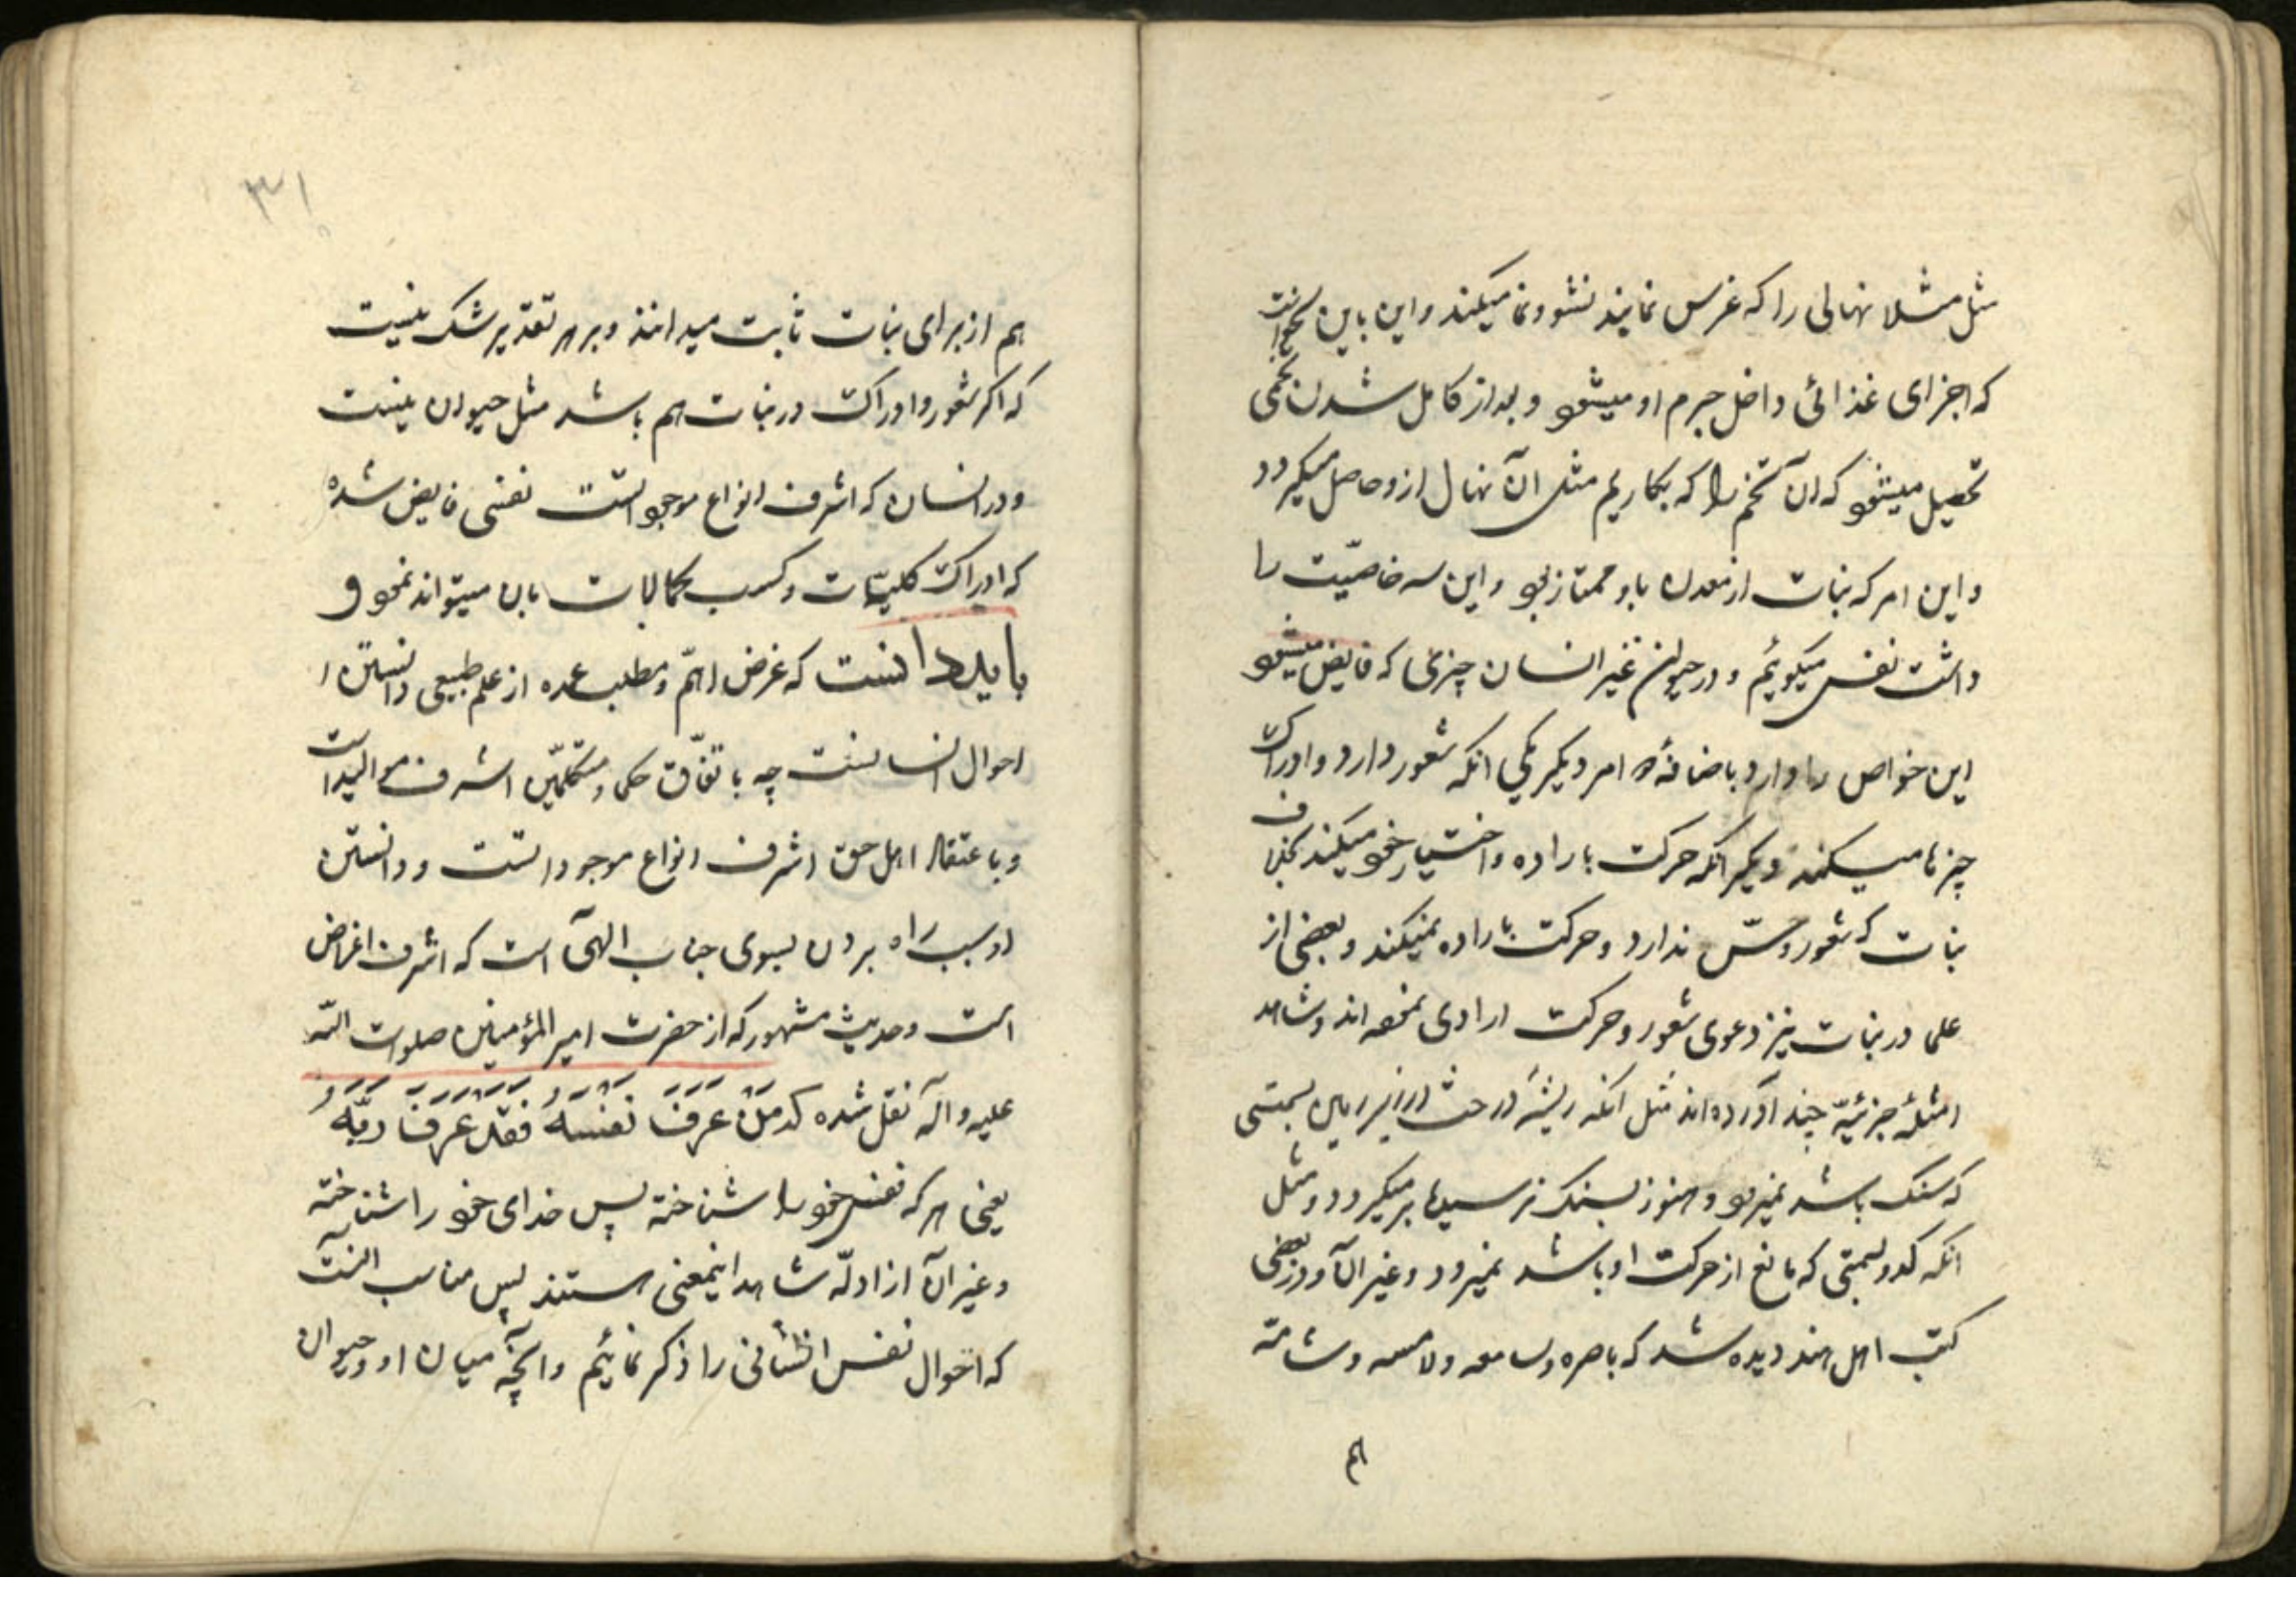 مثل مثلا نهالی را که غرس نمایند نشو و نما میکند و این باین نحو است
که اجزای غذائی داخل جرم او میشود و بعد از کامل شدن تخمی
تحصیل میشود که آن تخم را که بکاریم مثل آن نهال ازو حاصل میگردد
و این امر که نبات از معدن باو ممتاز بود و این سه خاصیّت را
داشت نفس میگوئیم و در حیوان غیر انسان چیزی که فایض میشود
این خواص را دارد باضافهٔ دو امر دیگر یکی انکه شعور دارد و ادراک
چیزها میکند دیگر انکه حرکت باراده و اختیار خود میکند بخلاف
نبات که شعور و حسّ ندارد و حرکت باراده نمیکند و بعضی از
علما در نبات نیز دعوی شعور و حرکت ارادی نموده اند و شاهد
امثلهٔ جزئیّه چند آورده اند مثل انکه ریشهٔ درخت در زیر زمین بسمتی
که سنک باشد نمیرود و هنوز بسنک نرسیده برمیگردد و مثل
انکه کدو بسمتی که مانع از حرکت او باشد نمیرود و غیر آن و در بعضی
کتب اهل هند دیده شد که باصره و سامعه و لامسه و شامّه
هم
۳۱
هم از برای نبات ثابت میدانند و بر هر تقدیر شک نیست
که اکر شعور و ادراک در نبات هم باشد مثل حیوان نیست
و در انسان که اشرف انواع موجوداتست نفسی فایض شده
که ادراک کلیّات و کسب کمالات بان میتواند نمود و
باید دانست که غرض اهمّ و مطلب عمده از علم طبیعی دانستن
احوال انسانست چه باتفّاق حکما و متکلمّین اشرف موالیداست
و باعتقاد اهل حق اشرف انواع موجوداتست و دانستن
او سبب راه بردن بسوی جناب الهی است که اشرف اغراض
است و حدیث مشهور که از حضرت امیر المؤمنین صلوات اللّه
علیه و آله نقل شده که مَنْ عَرَفَ نَفْسَهُ فَقَدْ عَرَفَ رَبَّهُ
یعنی هر که نفس خود را شناخته پس خدای خود را شناخته
و غیر آن از ادلّه شاهد اینمعنی هستند پس مناسب آنست
که احوال نفس انسانی را ذکر نمائیم و آنچه میان او و حیوان